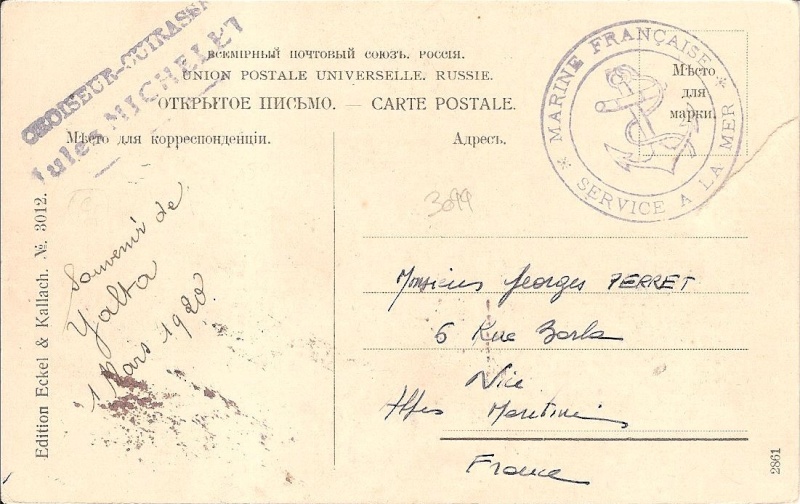 CROISEUR-CUIRASSÉ
Jules MICHELET
Всемірный почтовый союзъ. Россія.
UNION POSTALE UNIVERSELLE. RUSSIE.
ОТКРЫТОЕ ПИСЬМО. — CARTE POSTALE.
Мѣсто для корреспонденціи.
Адресъ.
Мѣсто
для
марки.
* MARINE FRANÇAISE *
SERVICE A LA MER
3099
Souvenir de
Yalta
1 Mars 1920
Monsieur Georges PERRET
6 Rue Barla
Nice
Alpes Maritimes
France
Edition Eckel & Kallach. №. 3012.
2861